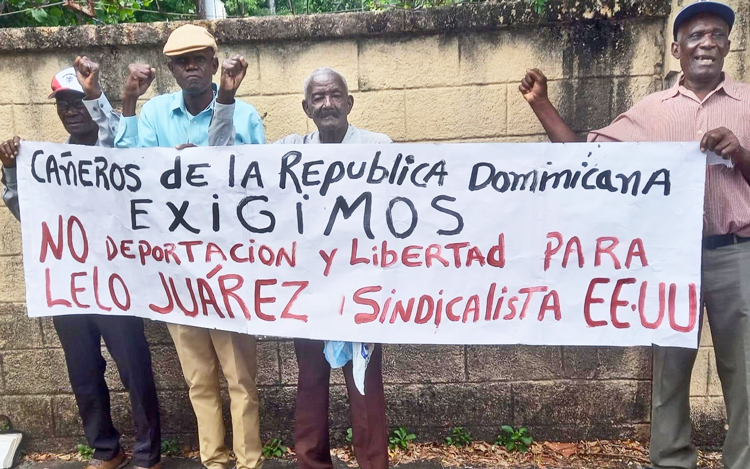 CAÑEROS DE LA REPUBLICA DOMINICANA
EXIGIMOS
NO DEPORTACION Y LIBERTAD PARA
LELO JUÁREZ SINDICALISTA EE.UU